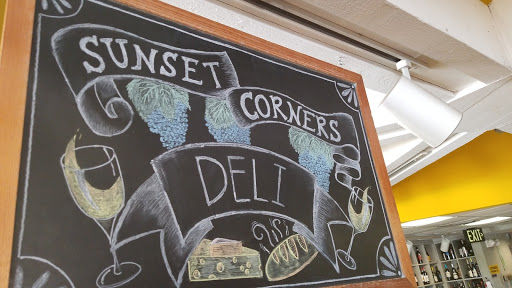 SUNSET
CORNERS
DELI
EXIT